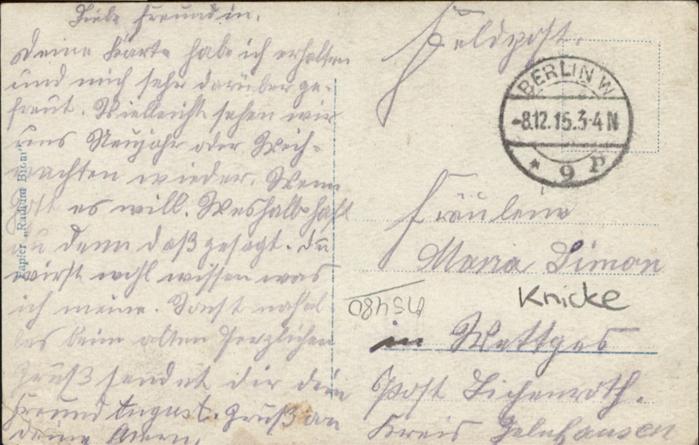 Liebe Freundin.
Deine Karte habe ich erhalten
und mich sehr darüber ge-
freut. Vielleicht sehen wir
uns Neujahr oder Weih-
nachten wieder. Wenn
Gott es will. Weshalb hast
du denn daß gesagt. Du
wirst wohl wissen was
ich meine. Sonst
beim alten Herzlichen
Gruß sendet dir dein
Freund August. Gruß an
deine Eltern.
Papier
Feldpost.
BERLIN W
-8.12.15.3-4N
* 9 P
Fräulein
Maria Simon
Knicke
in Wettges
Post Lichenroth.
Kreis Gelnhausen